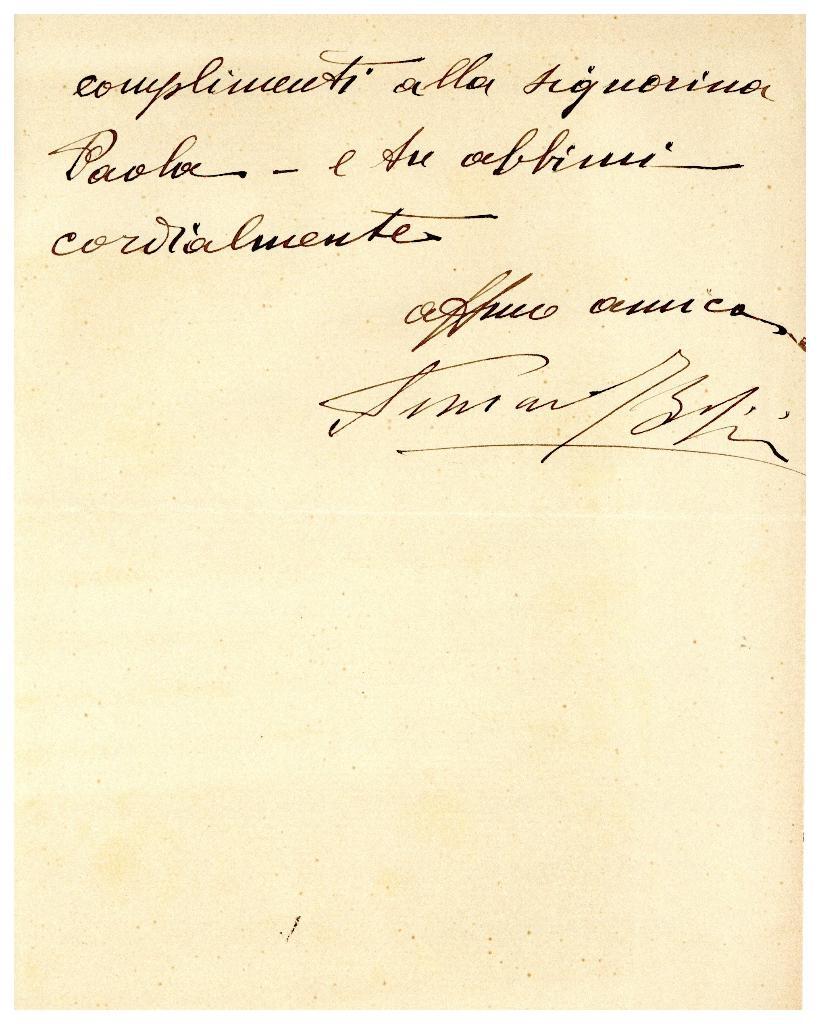 complimenti alla signorina
Paola - e tu abbimi
cordialmente
affmo amico